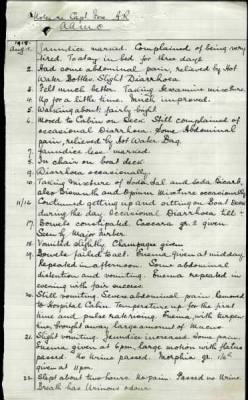 Notes re Capt. Fox. A.R.
A.A.M.C.
1918.
Aug. 1. Jaundice marked. Complained of being very
tired. To stay in bed for three days
2. Had some abdominal pain, relieved by Hot
Water Bottles. Slight Diarrhoea.
3. Felt much better. Taking mixture.
4. Up for a little time. Much improved.
5. Walking about fairly bright
6. Moved to Cabin on Deck. Still complained of
occasional Diarrhoea. Some Abdominal
pain, relieved by Hot Water Bag.
7. Jaundice less marked.
8. In chair on boat deck
9. Diarrhoea occasionally.
10. Taking mixture of Soda Sal. and Soda Bicarb,
also Bismuth and Opium Mixture occasionally
11/16 Continued getting up and sitting on Boat Deck
during the day. Occasional Diarrhoea till
17. Bowels constipated. Cascara gr. 2 given
Seen by Major
18. Vomited slightly. Champagne given.
19. Bowels failed to act. Enema given at midday.
Repeated in afternoon. Some abdominal
distention and vomiting. Enema repeated in
evening with fair success.
20. Still vomiting. Severe abdominal pain. Removed
to Hospital Cabin. Temperature up for the first
time and pulse rate rising. Enema, with turpen-
tine, brought away large amount of Mucus
21. Slight vomiting. Jaundice increased. Some pain.
Enema given at 6 p.m. Large motion with flatus
passed. No Urine passed. Morphia gr. 1/4
given at 11 p.m.
22. Slept about two hours. No pain. Passed no Urine
Breath has Urinous odour.